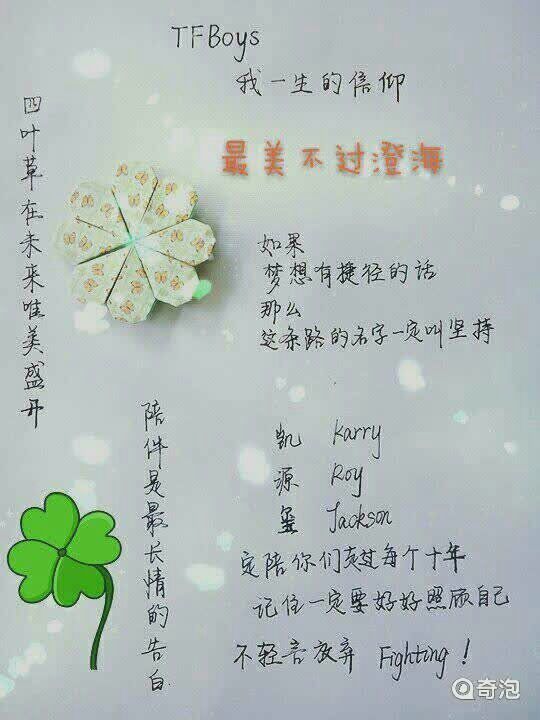 TFBoys
我一生的信仰
最美不过澄海
四叶草在未来唯美盛开
如果
梦想有捷径的话
那么
这条路的名字一定叫坚持
陪伴是最长情的告白
凯 Karry
源 Roy
玺 Jackson
定陪你们走过每个十年
记住一定要好好照顾自己
不轻言放弃 Fighting!
奇泡